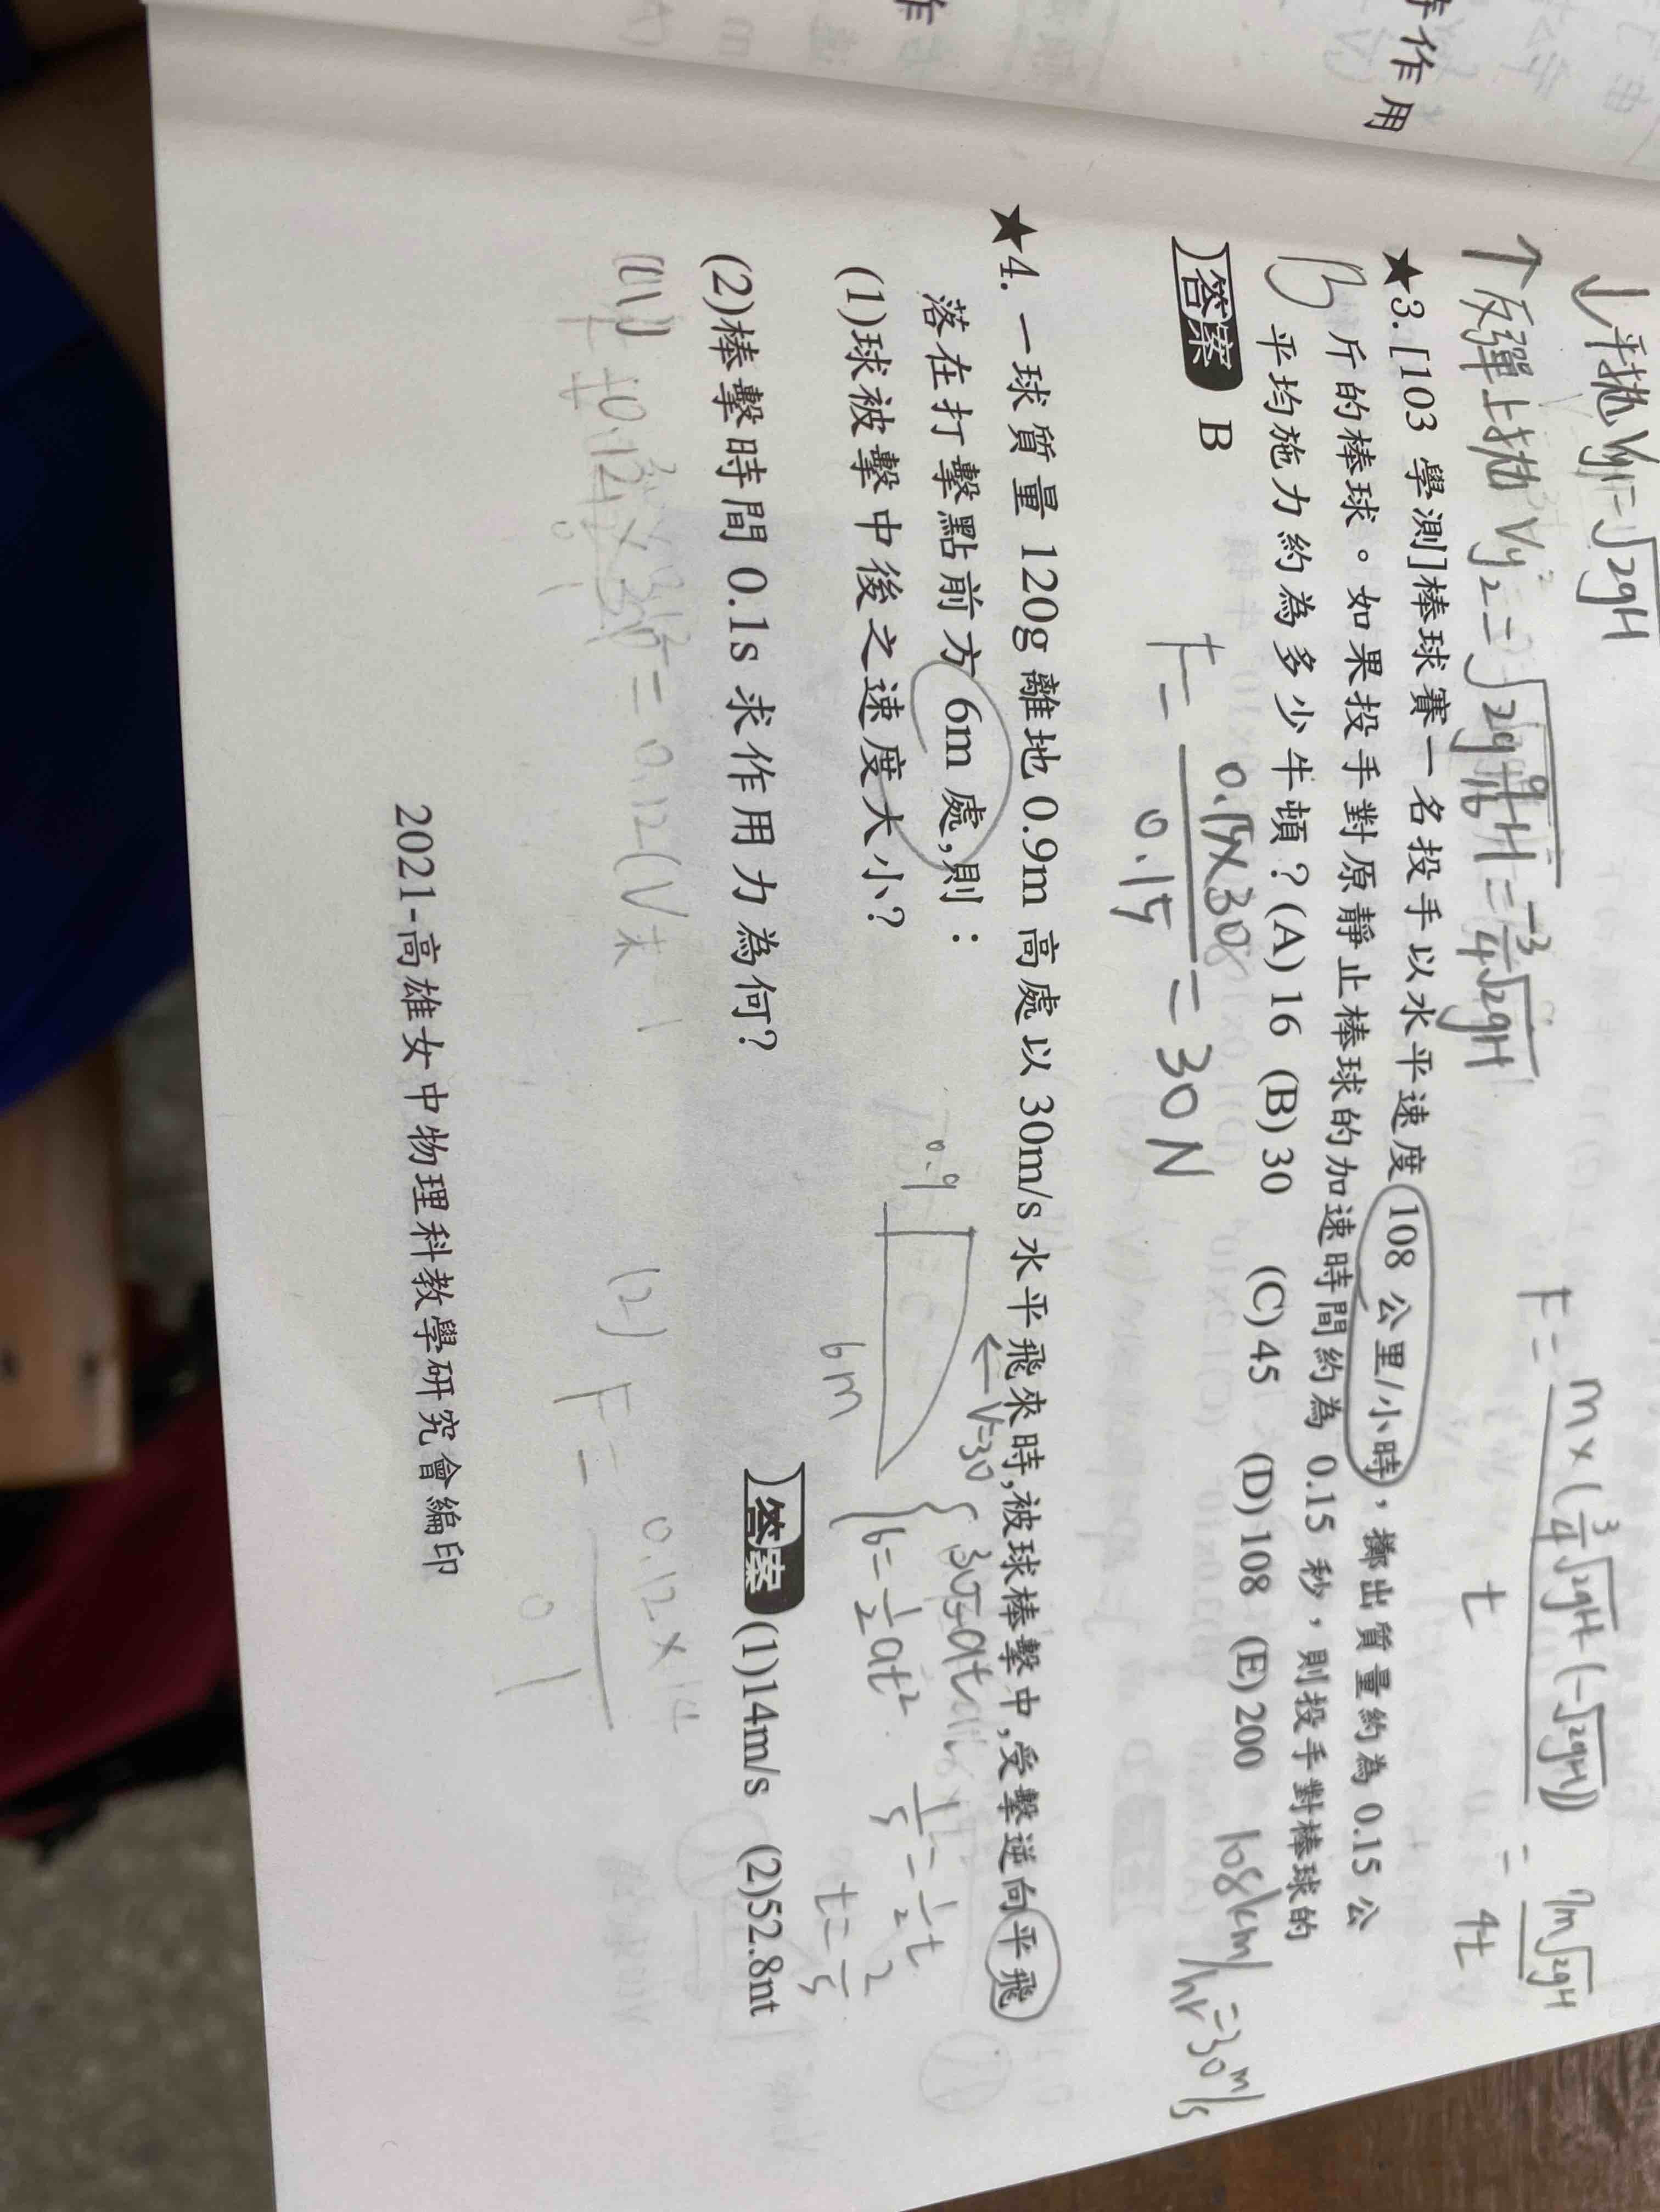 作用
作
↓平拋 Vy₁=√2gH
↑反彈上拋 Vy₂=√2g 9/16 H = -3/4 √2gH
F= m×(3/4 √2gH+(-√2gH)) / t = 7m√2gH / 4t
★3.[103 學測]棒球賽一名投手以水平速度 108 公里/小時，擲出質量約為 0.15 公
斤的棒球。如果投手對原靜止棒球的加速時間約為 0.15 秒，則投手對棒球的
B 平均施力約為多少牛頓？(A)16 (B)30 (C)45 (D)108 (E)200
108km/hr=30m/s
答案 B
F= 0.15×30 / 0.15 = 30N
★4. 一球質量 120g 離地 0.9m 高處以 30m/s 水平飛來時,被球棒擊中,受擊逆向平飛
落在打擊點前方 6m 處,則：
←V=30
(1)球被擊中後之速度大小?
0.9
6m
6=1/2 at²
t=
(2)棒擊時間 0.1s 求作用力為何?
答案 (1)14m/s (2)52.8nt
(1)
=0.12(V末
(2) F= 0.12×14 / 0.1
2021-高雄女中物理科教學研究會編印